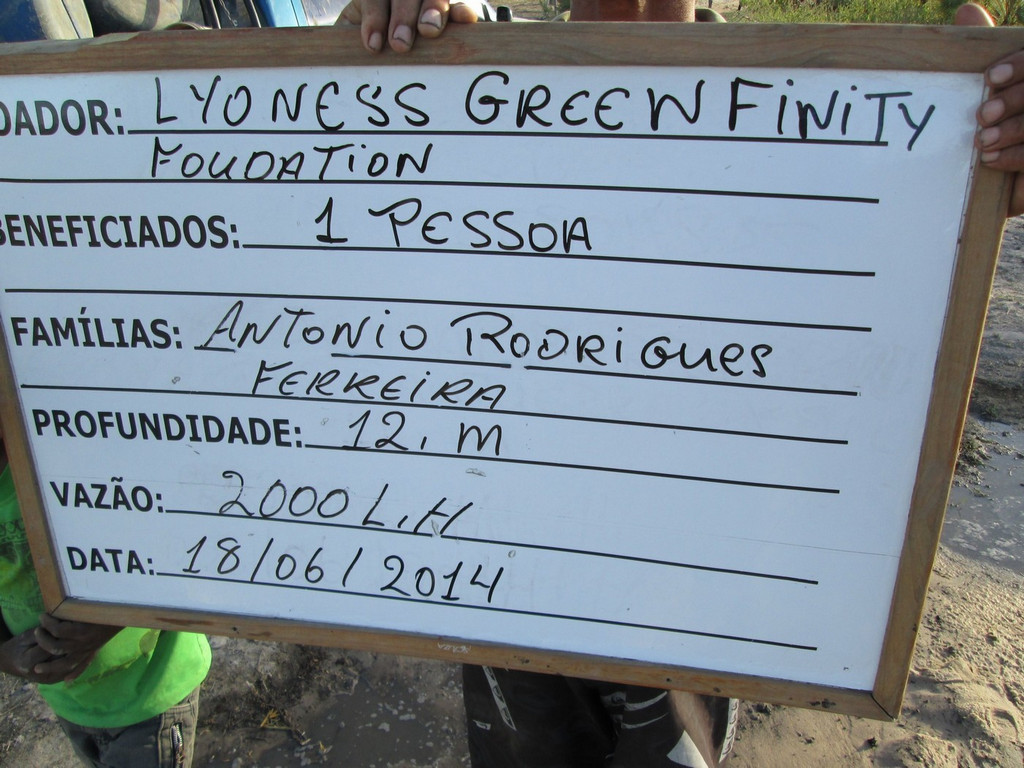 DOADOR: LYONESS GREENFINITY
FOUDATION
BENEFICIADOS: 1 PESSOA
FAMÍLIAS: ANTONIO RODRIGUES
FERREIRA
PROFUNDIDADE: 12. M
VAZÃO: 2000 L.H
DATA: 18/06/2014